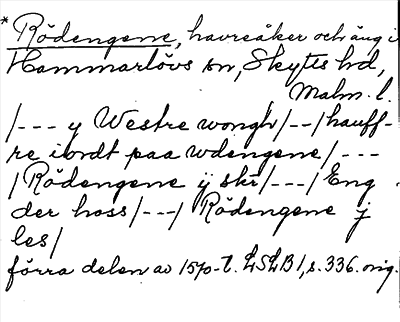 * Rödengene, havreåker och äng i
Hammarlövs sn, Skytts hd,
Malm. l.
/--- y Westre wongh/--/hauff-
re iordt paa wdengene/---
/Rödengene ÿ skr/---/Eng
der hoss/---/ Rödengene j
les/
förra delen av 1570-t. LSLB 1, s. 336. orig.